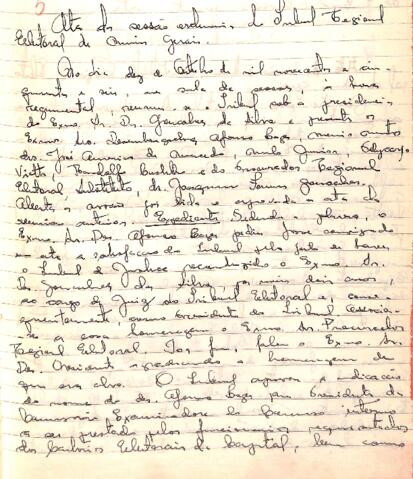 Ata da sessão ordinaria do Tribunal Regional
Eleitoral de Minas Gerais.
Ao dia dez de de mil novecentos e cin-
quenta e seis, na sala de sessões, à hora
regimental, reuniu-se o Tribunal sob a presidencia
do Exmo. Sr. Des. Gonçalves da Silva e presentes os
Exmos. Srs. Desembargador Afonso
drs. José Americo de Macedo,
Vieira, e do Procurador Regional
Eleitoral Substituto, dr. Joaquim
Aberta a sessão foi lida e aprovada a ata da
reunião anterior. Expediente: Pedindo a palavra, o
Exmo. Sr. Des. Afonso pediu fosse consignado
em ata a satisfação do Tribunal pelo fato de haver
o Tribunal de Justiça reconduzido o Exmo. Sr.
Des. Gonçalves da Silva, por mais dois anos,
ao cargo de Juiz do Tribunal Eleitoral e, conse-
quentemente, como Presidente do Tribunal.
se a essa homenagem o Exmo. Sr. Procurador
Regional Eleitoral. Por fim, falou o Exmo. Sr.
Des. Presidente agradecendo a homenagem de
que era alvo. O Tribunal aprova a indicação
do nome do des. Afonso para Presidente da
Comissão Examinadora do Concurso interno
a ser prestado pelos funcionarios requisitados
dos Cartorios Eleitorais da Capital, bem como